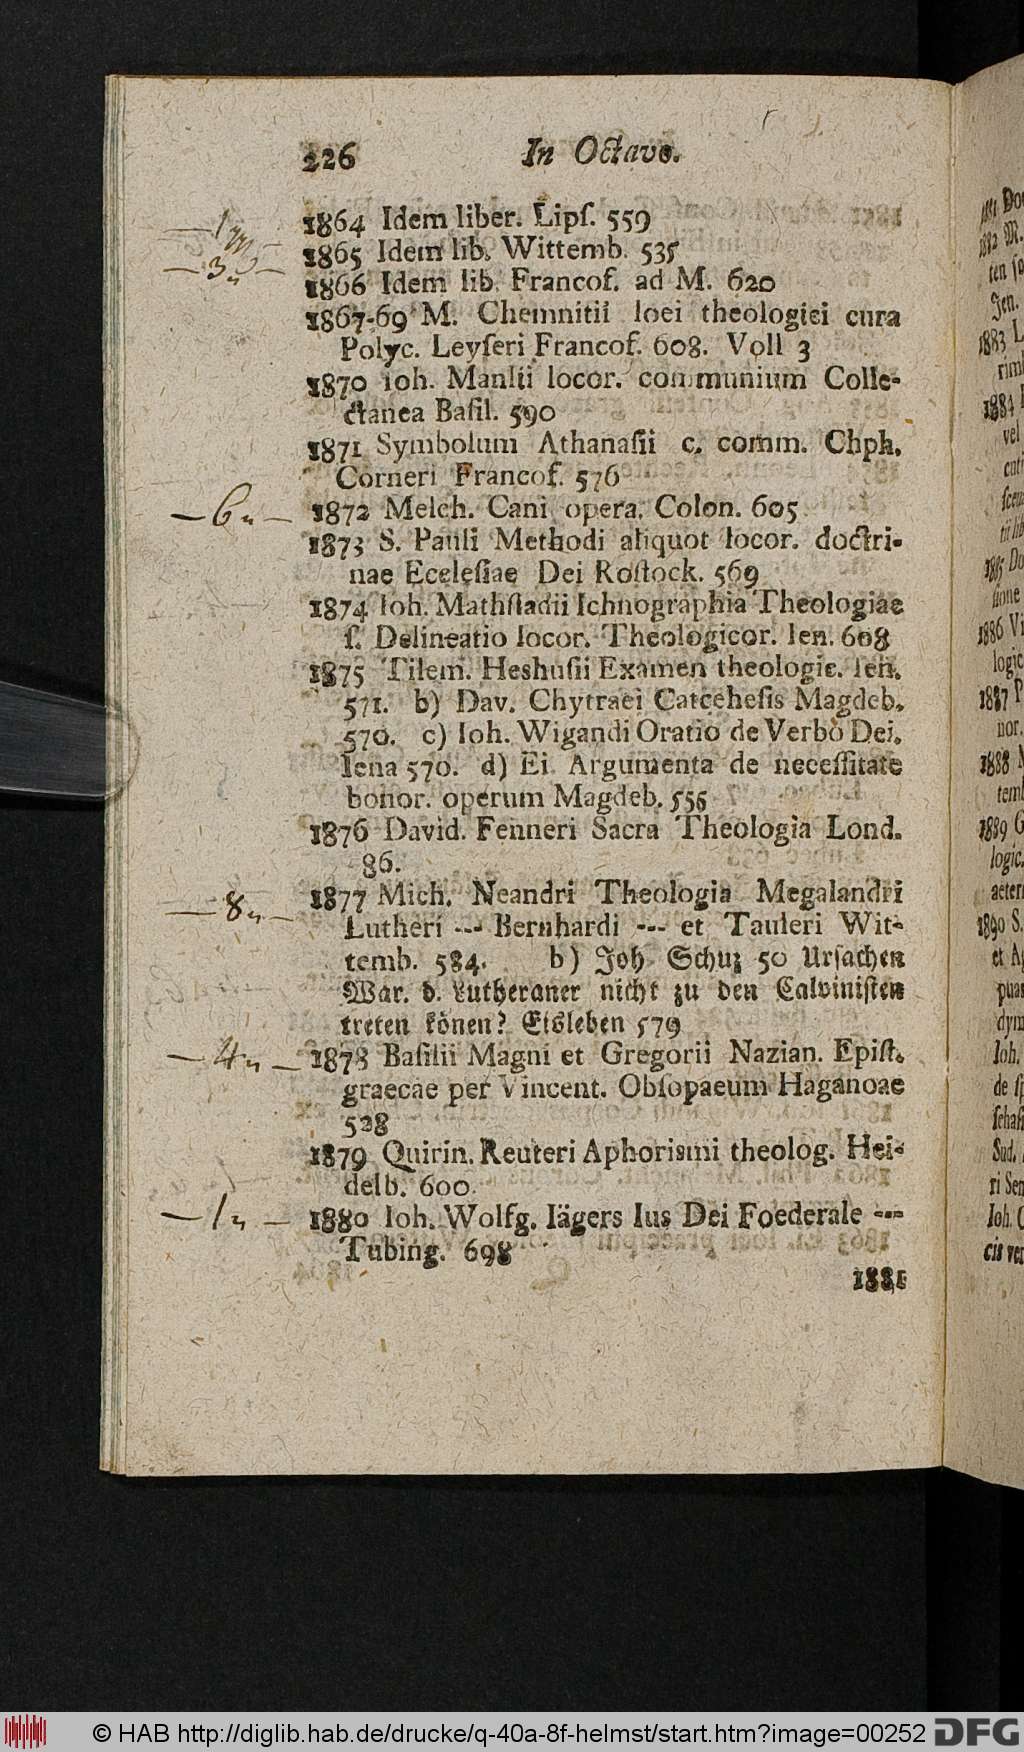 226 In Octavo.
1864 Idem liber. Lipſ. 559
1865 Idem lib. Wittemb. 535
1866 Idem lib. Francof. ad M. 620
1867-69 M. Chemnitii loci theologici cura
Polyc. Leyſeri Francof. 608. Voll 3
1870 Ioh. Manlii locor. communium Colle-
ctanea Baſil. 590
1871 Symbolum Athanaſii c. comm. Chph.
Corneri Francof. 576
—6„— 1872 Melch. Cani opera. Colon. 605
1873 S. Pauli Methodi aliquot locor. doctri-
nae Eccleſiae Dei Roſtock. 569
1874 Ioh. Mathſtadii Ichnographia Theologiae
ſ. Delineatio locor. Theologicor. Ien. 608
1875 Tilem. Heshuſii Examen theologic. Ien.
571. b) Dav. Chytraei Catceheſis Magdeb.
570. c) Ioh. Wigandi Oratio de Verbo Dei.
Iena 570. d) Ei. Argumenta de neceſſitate
bonor. operum Magdeb. 555
1876 David. Fenneri Sacra Theologia Lond.
86.
—8„— 1877 Mich. Neandri Theologia Megalandri
Lutheri --- Bernhardi --- et Tauleri Wit-
temb. 584. b) Joh Schuz 50 Urſachen
War. d. Lutheraner nicht zu den Calviniſten
treten könen? Eisleben 579
—4„— 1878 Baſilii Magni et Gregorii Nazian. Epiſt.
graecae per Vincent. Obſopaeum Haganoae
528
1879 Quirin. Reuteri Aphorismi theolog. Hei-
delb. 600.
—1„— 1880 Ioh. Wolfg. Iägers Ius Dei Foederale ---
Tubing. 698
1881
© HAB http://diglib.hab.de/drucke/q-40a-8f-helmst/start.htm?image=00252 DFG